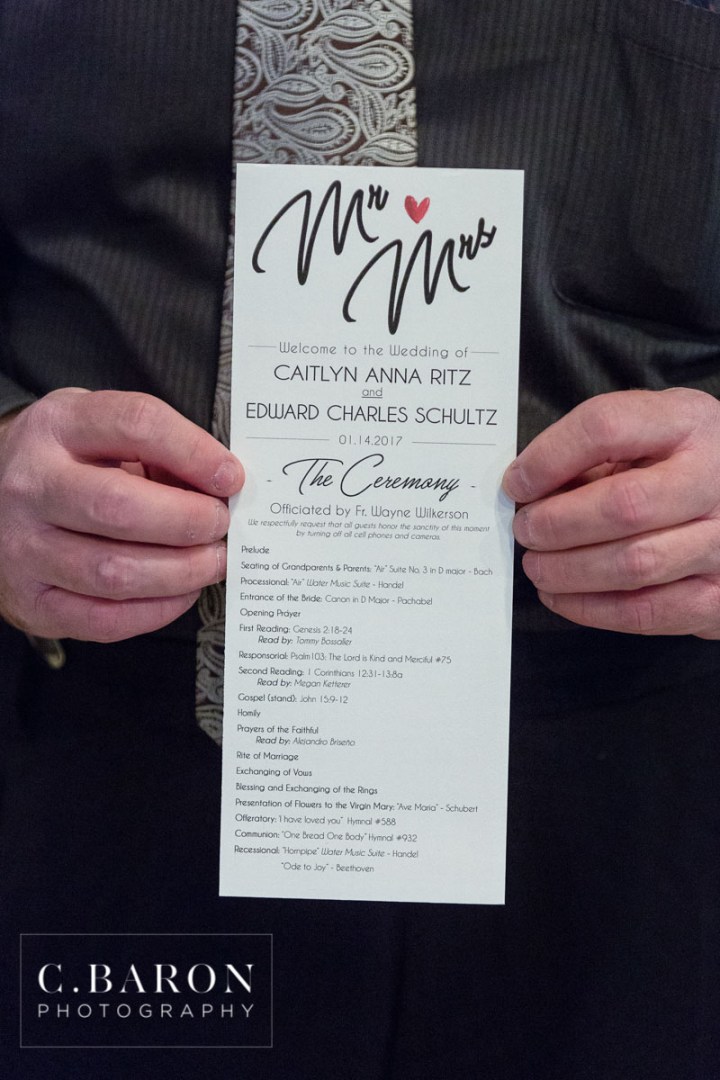 Mr ♥ Mrs
Welcome to the Wedding of
CAITLYN ANNA RITZ
and
EDWARD CHARLES SCHULTZ
01.14.2017
- The Ceremony -
Officiated by Fr. Wayne Wilkerson
We respectfully request that all guests honor the sanctity of this moment
by turning off all cell phones and cameras.
Prelude
Seating of Grandparents & Parents: "Air" Suite No. 3 in D major - Bach
Processional: "Air" Water Music Suite - Handel
Entrance of the Bride: Canon in D Major - Pachabel
Opening Prayer
First Reading: Genesis 2:18-24
Read by: Tommy Bossaller
Responsorial: Psalm103: The Lord is Kind and Merciful #75
Second Reading: 1 Corinthians 12:31-13:8a
Read by: Megan Ketterer
Gospel (stand): John 15:9-12
Homily
Prayers of the Faithful
Read by: Alejandro Briseño
Rite of Marriage
Exchanging of Vows
Blessing and Exchanging of the Rings
Presentation of Flowers to the Virgin Mary: "Ave Maria" - Schubert
Offeratory: "I have loved you" Hymnal #588
Communion: "One Bread One Body" Hymnal #932
Recessional: "Hornpipe" Water Music Suite - Handel
"Ode to Joy" - Beethoven
C. BARON
PHOTOGRAPHY